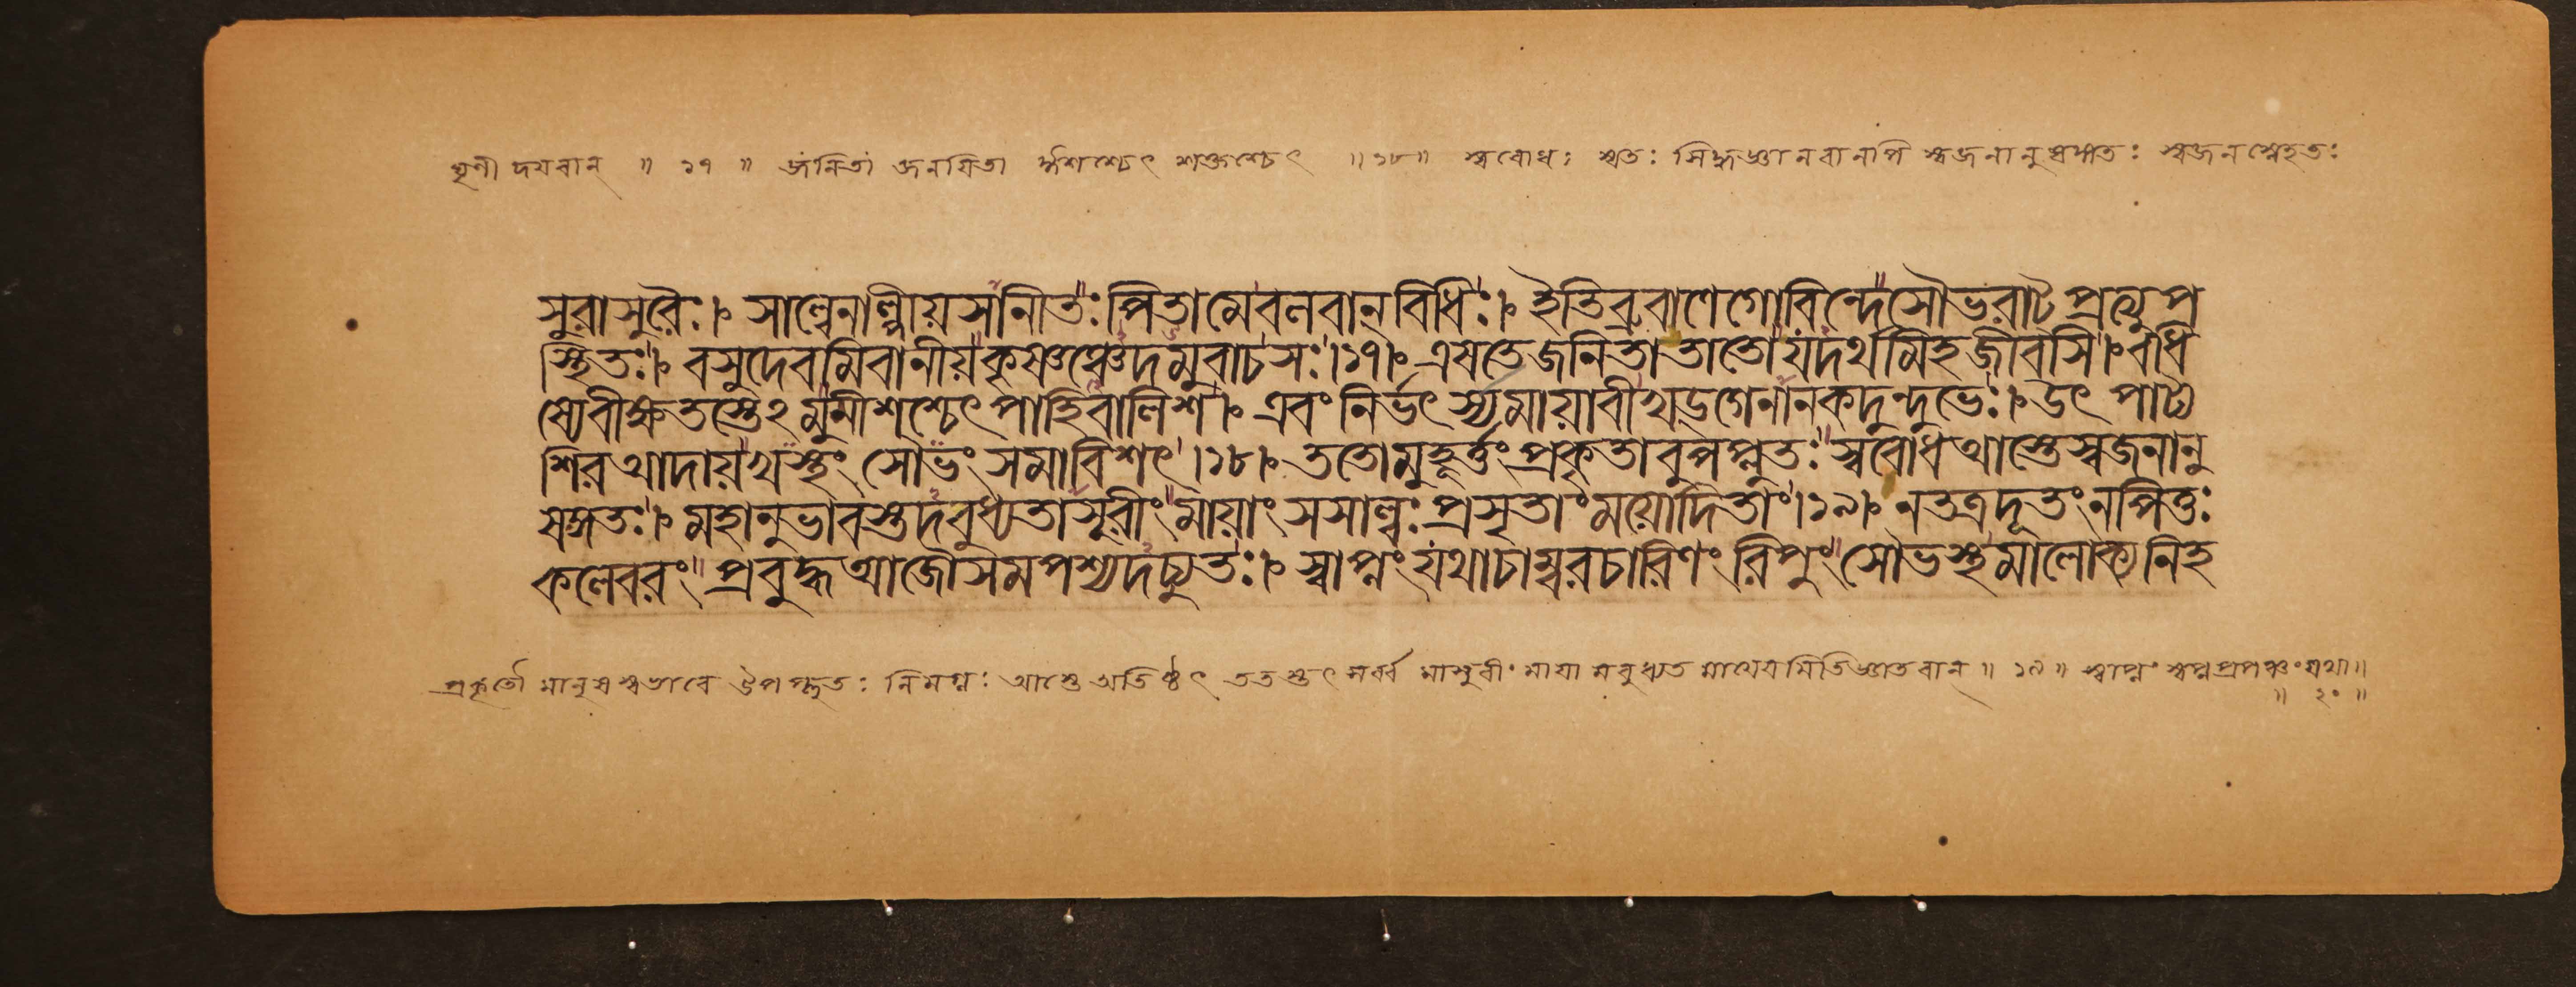 ঘৃণী দয়াবান্ ॥ ১৭ ॥ জনিতা জনয়িতা ঈশশ্চেৎ শক্তশ্চেৎ ॥ ১৮ ॥ স্ববোধঃ স্বতঃ সিদ্ধজ্ঞানবানপি স্বজনানুষঙ্গতঃ স্বজনস্নেহতঃ
সুরাসুরৈঃ। শাল্বেনাল্পীয়সানীতঃ পিতা মে বলবান্ বিধিঃ। ইতি ব্রুবাণে গোবিন্দে সৌভরাট প্রত্যুপ
স্থিতঃ। বসুদেবমিবানীয় কৃষ্ণঞ্চেদমুবাচ সঃ।১৭। এষ তে জনিতা তাতো যদর্থমিহ জীবসি। বধি
ষ্যে বীক্ষতস্তেঽমুমীশশ্চেৎ পাহি বালিশ। এবং নির্ভৎর্স্য মায়াবী খড্গেনানকদুন্দুভেঃ। উৎ পাট্য
শির আদায় খস্থং সৌভং সমাবিশৎ।১৮। ততো মুহূর্ত্তং প্রকৃতাবুপপ্লুতঃ স্ববোধ আস্তে স্বজনানু
ষঙ্গতঃ। মহানুভাবস্তদবুধ্যতাসুরীং মায়াং স সাল্বঃ প্রসৃতাং ময়োদিতাং।১৯। ন তত্র দূতং ন পিতুঃ
কলেবরং প্রবুদ্ধ আজৌ সমপশ্যদচ্যুতঃ। স্বাপ্নং যথা চাম্বরচারিণং রিপুং সৌভস্থমালোক্য নিহ
প্রকৃতৌ মানুষস্বভাবে উপপ্লুতঃ নিমগ্নঃ আস্তে অতিষ্ঠৎ তত স্তৎ সর্ব্ব মাসুরীং মায়া মবুধ্যত মায়েবমিতি জ্ঞাতবান্ ॥ ১৯ ॥ স্বাপ্নং স্বপ্নপ্রপঞ্চং যথা॥
॥ ২০ ॥